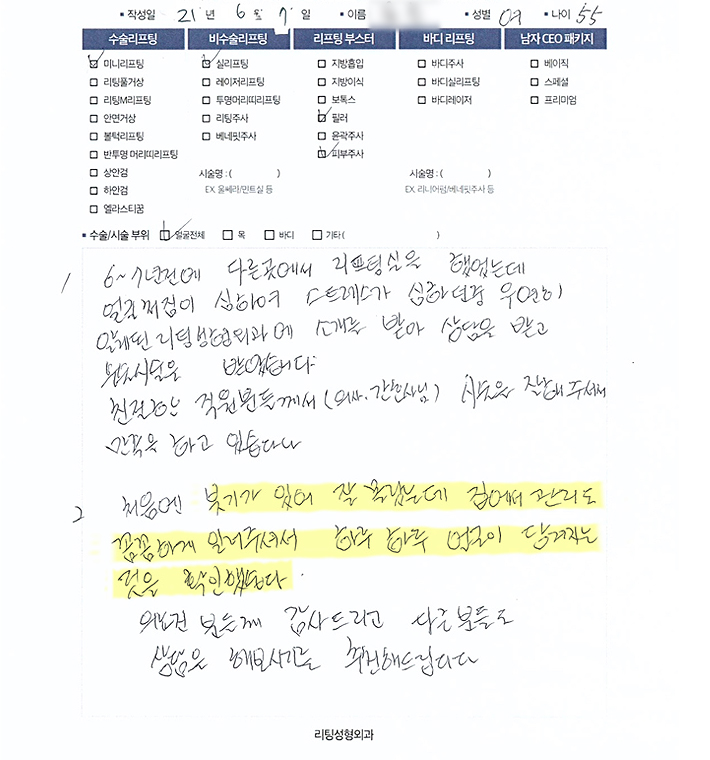 ▪ 작성일 21 년 6 월 7 일 ▪ 이름 ▪ 성별 여 ▪ 나이 55
수술리프팅 비수술리프팅 리프팅 부스터 바디 리프팅 남자 CEO 패키지
☑ 미니리프팅 ☑ 실리프팅 □ 지방흡입 □ 바디주사 □ 베이직
□ 리팅풀거상 □ 레이저리프팅 □ 지방이식 □ 바디실리프팅 □ 스페셜
□ 리팅M리프팅 □ 투명머리띠리프팅 □ 보톡스 □ 바디레이저 □ 프리미엄
□ 안면거상 □ 리팅주사 ☑ 필러
□ 볼턱리프팅 □ 베네핏주사 □ 윤곽주사
□ 반투명 머리띠리프팅 ☑ 피부주사
□ 상안검 시술명 : ( ) 시술명 : ( )
□ 하안검 EX. 울쎄라/민트실 등 EX. 리니어펌/베네핏주사 등
□ 엘라스티꿈
▪ 수술/시술 부위 ☑ 얼굴전체 □ 목 □ 바디 □ 기타 ( )
1 6~7년전에 다른곳에서 리프팅실을 했었는데
얼굴꺼짐이 심하여 스트레스가 심하던중 우연히
리팅성형외과에 소개를 받아 상담을 받고
받았습니다
친절하신 직원분들께서 (의사, 간호사님) 시술을 잘해주셔서
만족을 하고 있습니다
2 처음엔 붓기가 있어 잘 몰랐는데 집에서 관리도
꼼꼼하게 알려주셔서 하루 하루 얼굴이 당겨지는
것을 확인했습니다.
의료진 분들께 감사드리고 다른분들도
상담을 해보시기를 추천해드립니다
리팅성형외과